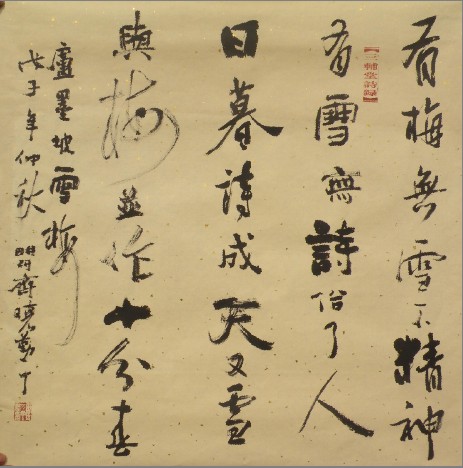 有梅無雪不精神
有雪無詩俗了人
日暮詩成天又雪
與梅並作十分春
盧墨坡雪梅
戊子年仲秋